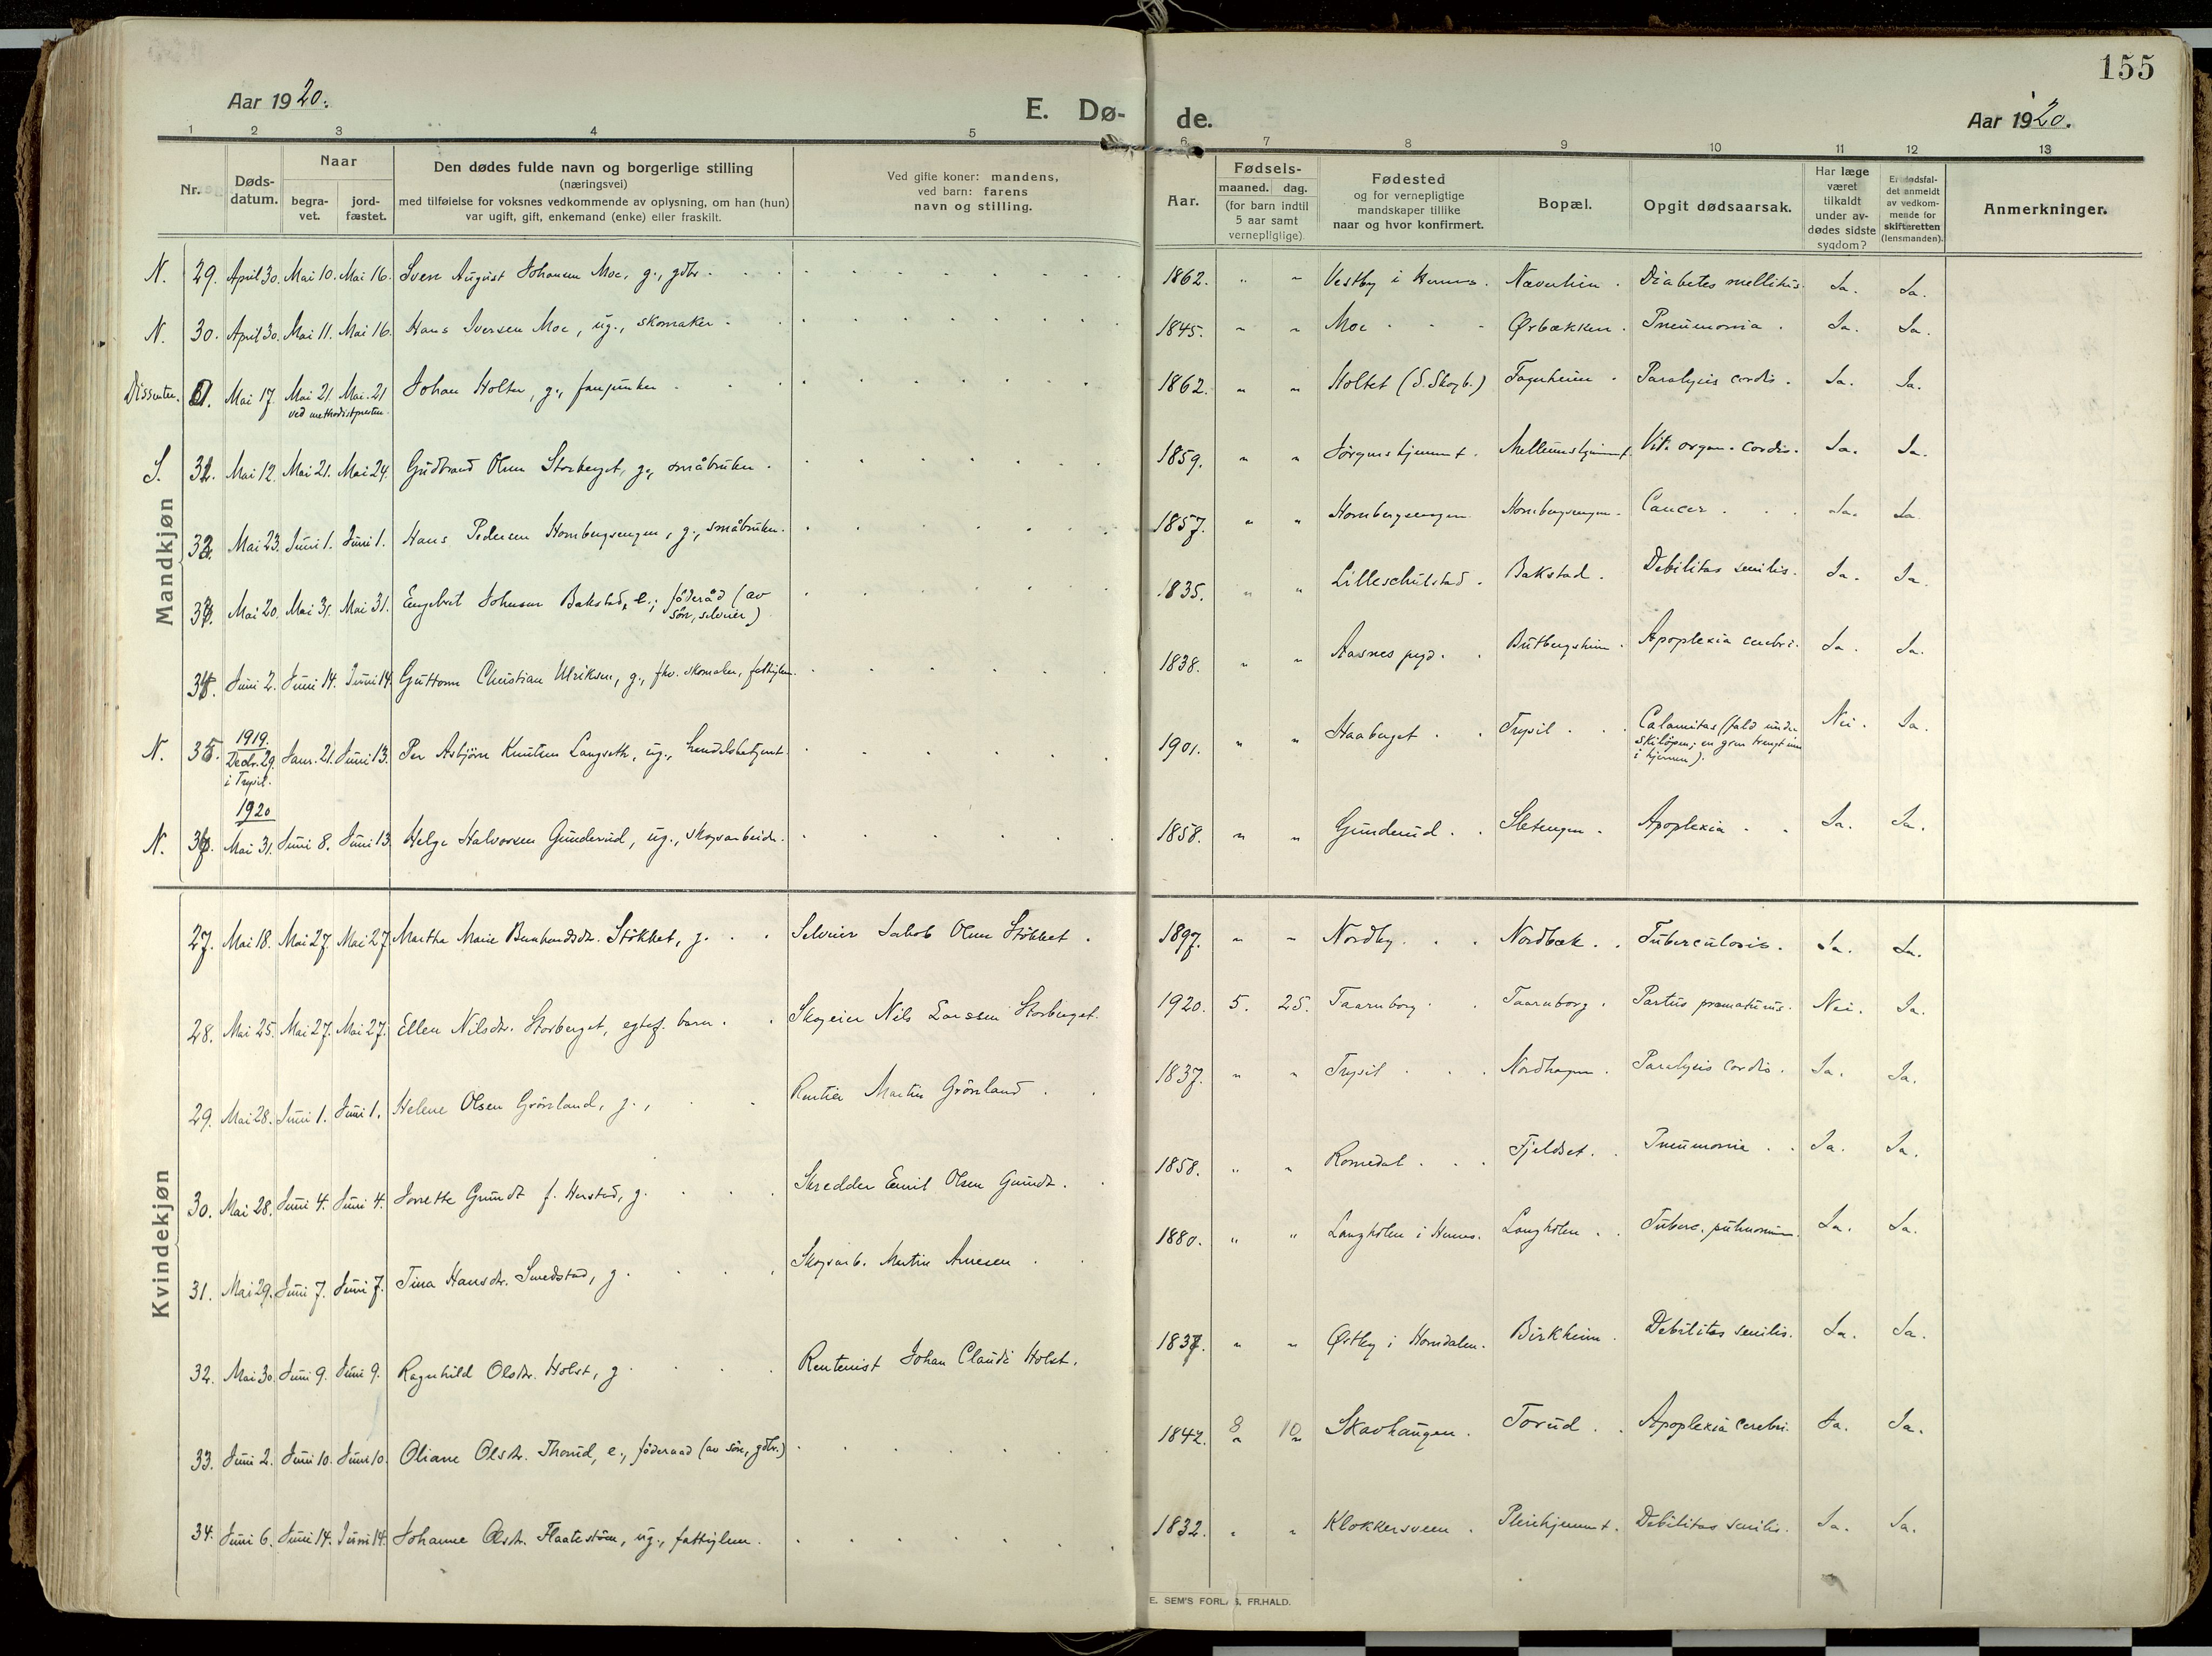 155
Aar 1920.
E. Dø-
de.
Aar 1920.
1 2 3 4 5 6 7 8 9 10 11 12 13
Nr.
Døds-
datum.
Naar
begra-
vet.
jord-
fæstet.
Den dødes fulde navn og borgerlige stilling
(næringsvei)
med tilføielse for voksnes vedkommende av oplysning, om han (hun)
var ugift, gift, enkemand (enke) eller fraskilt.
Ved gifte koner: mandens,
ved barn: farens
navn og stilling.
Aar.
Fødsels-
maaned. dag.
(for barn indtil
5 aar samt
vernepliglige)
Fødested
og for vernepligtige
mandskaper tillike
naar og hvor konfirmert.
Bopæl.
Opgit dødsaarsak.
Har læge
været
tilkaldt
under av-
dødes sidste
sygdom?
Er dødsfal-
det anmeldt
av vedkom-
mende for
skifteretten
(lensmanden).
Anmerkninger.
Mandkjøn
N. 29. April 30. Mai 10. Mai 16. Sven August Johansen Moe, g., gdbr. 1862. " " Vestby i Diabetes mellitus. Ja. Ja.
N. 30. April 30. Mai 11. Mai 16. Hans Iversen Moe, ug., skomaker. 1845. " " Moe Ørbækken. Pneumonia. Ja. Ja.
Dissenter. Mai 17. Mai 21. Mai 21 Johan Holter, g., fanejunker 1862. " " Holtet (S. Skogb.) Fagerheim. Paralysis cordis. Ja. Ja.
ved methodistpresten.
S. Mai 12. Mai 21. Mai 24. Gudbrand Olsen Storberget, g., småbruker. 1859. " " Vit. organ. cordis. Ja. Ja.
Mai 23. Juni 1. Juni 1. Hans Pedersen Hornbergsengen, g., småbruker. 1857. " " Hornbergsengen Hornbergsengen. Cancer. Ja. Ja.
Mai 20. Mai 31. Mai 31. Engebret Johnsen Bakstad, e., föderåd (av 1835. " " Lilleschulstad. Bakstad. Debilitas senilis. Ja. Ja.
sön, selveier)
Juni 2. Juni 14. Juni 14. Guttorm Christian Ulriksen, g., fhv. skomaker, fattiglem. 1838. " " Aasnes pgd. Apoplexia cerebri. Ja. Ja.
N. 1919. Decbr. 29. i Trysil. Janr. 21. Juni 13. Per Asbjörn Knutsen Langseth, ug., handelsbetjent. 1901. " " Haaberget Trysil Calamitas (fald under Nei. Ja.
skilöpen; en gren trengt inn
i hjernen).
1920
N. Mai 31. Juni 8. Juni 13 Helge Halvorsen Gunderud, ug., skogsarbeider. 1858. " " Gunderud. Sletengen. Apoplexia Ja. Ja.
Kvindekjøn
27. Mai 18. Mai 27. Mai 27 Martha Marie Bernhardsdr. Stökket, g. Selveier Jakob Olsen Stökket. 1897. " " Nordby. Nordbæk. Tuberculosis. Ja. Ja.
28. Mai 25. Mai 27. Mai 27. Ellen Nilsdr. Storberget, egtef. barn. Skogeier Nils Larssen Storberget. 1920. 5. 25. Taarnborg Taarnborg. Partus præmaturus. Nei. Ja.
29. Mai 28. Juni 1. Juni 1. Helene Olsen Grönland, g., Rentier Martin Grönland 1837. " " Trysil Nordhagen. Paralysis cordis. Ja. Ja.
30. Mai 28. Juni 4. Juni 4. Grundt f. Herstad, g. Skredder Emil Olsen Grundt. 1858. " " Romedal Fjeldset. Pneumonia Ja. Ja.
31. Mai 29. Juni 7. Juni 7. Tina Hansdr. Smedstad, g. Skogsarb. Martin Arnesen 1880. " " Langholen i Langholen Tuberc. pulmonum. Ja. Ja.
32. Mai 30. Juni 9. Juni 9. Ragnhild Olsdr. Holst, g Rentenist Johan Claudi Holst. " " Østby i Birkheim. Debilitas senilis. Ja. Ja.
33. Juni 2. Juni 10. Juni 10. Oliane Olsdr. Thorud, e., föderaad (av sön, gdbr.) 1842. 8 10 Skavhaugen. Torud. Apoplexia cerebri. Ja. Ja.
34. Juni 6. Juni 14. Juni 14. Johanne Olsdr. Flaateström, ug., fattiglem. 1832. " " Klokkersveen. Pleiehjemmet. Debilitas senilis. Ja. Ja.
E. SEM'S FORLAG, FR.HALD.